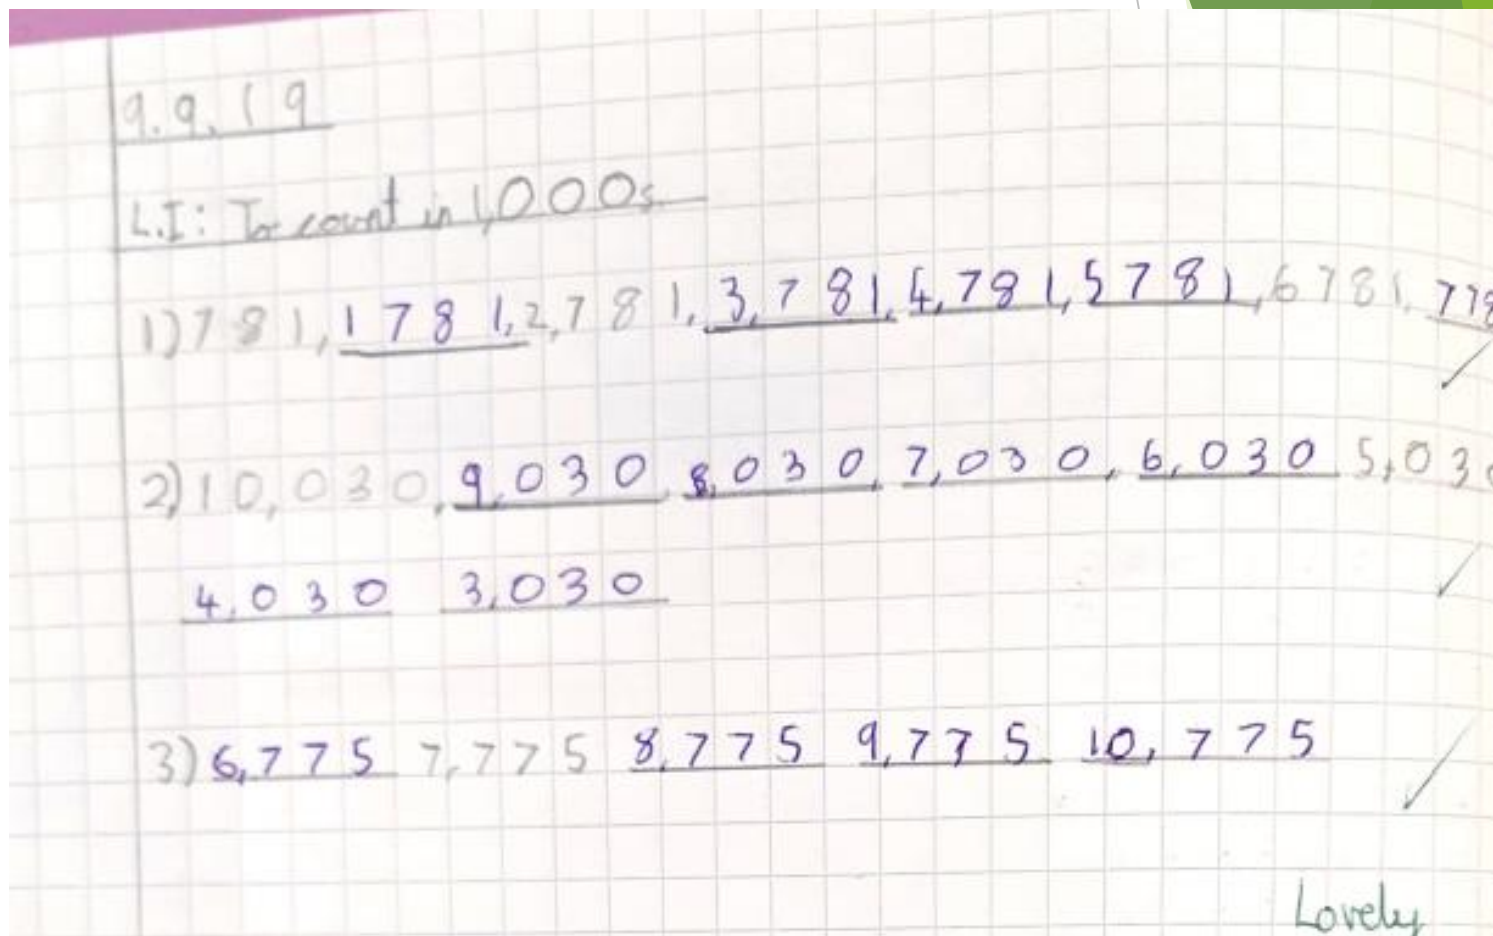 9.9.19
L.I: To count in 1,000s
1) 781, 1781, 2,781, 3,781, 4,781, 5781, 6781, 778
2) 10,030, 9,030 8,030, 7,030, 6,030 5,030
4,030 3,030
3) 6,775 7,775 8,775 9,775 10,775
Lovely